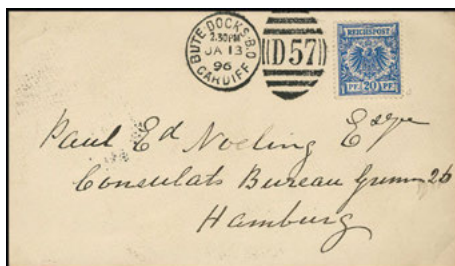 BUTE·DOCKS·B.O
2.30PM
JA 13
96
CARDIFF
D57
REICHSPOST
PF 20 PF
Paul Ed Noeling Esqre
Consulats Bureau 26
Hamburg